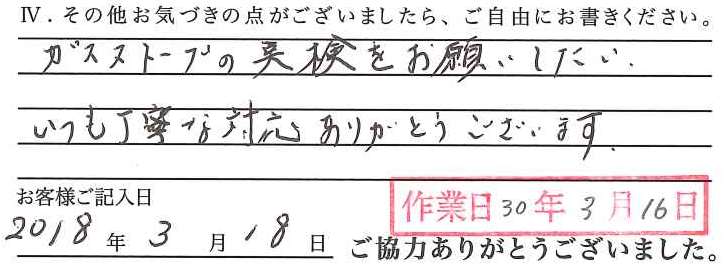 Ⅳ．その他お気づきの点がございましたら、ご自由にお書きください。
ガスストーブの点検をお願いしたい.
いつも丁寧な対応ありがとうございます.
お客様ご記入日
作業日 30年 3月16日
2018年 3月 18日
ご協力ありがとうございました。